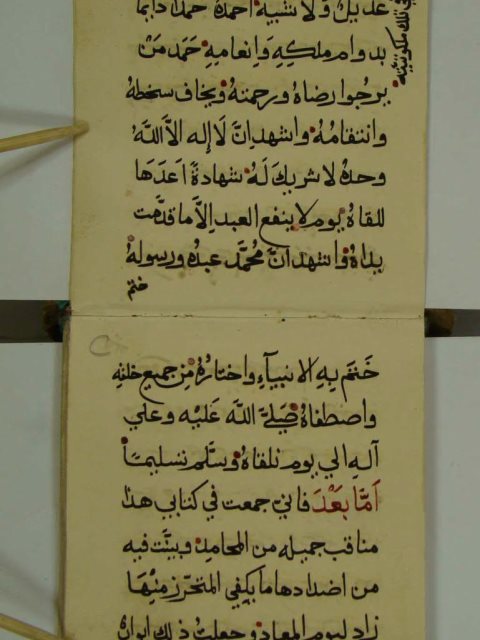 عديل ولا شبيه احمده حمدا دايما
بدوام ملكه وانعامه حمد من
يرجوا رضاه ورحمته ويخاف سخطه
وانتقامه واشهد ان لا إله الا الله
وحده لا شريك له شهادة اعدها
للقاه يوم لا ينفع العبد الا ما قدمت
يداه واشهد ان محمد عبده ورسوله
ختم
خَتَم به الانبيآء واختاره من جميع خلقه
واصطفاه صلى الله عليه وعلي
آله الي يوم نلقاه وسلم تسليما
اَمّا بَعْدَ فاني جمعت في كتابي هذا
مناقب جميله من المحامد وبينت فيه
من اضدادها ما يكفي المتحرز منها
زاد ليوم المعاد وجعلت ذلك ابوابا